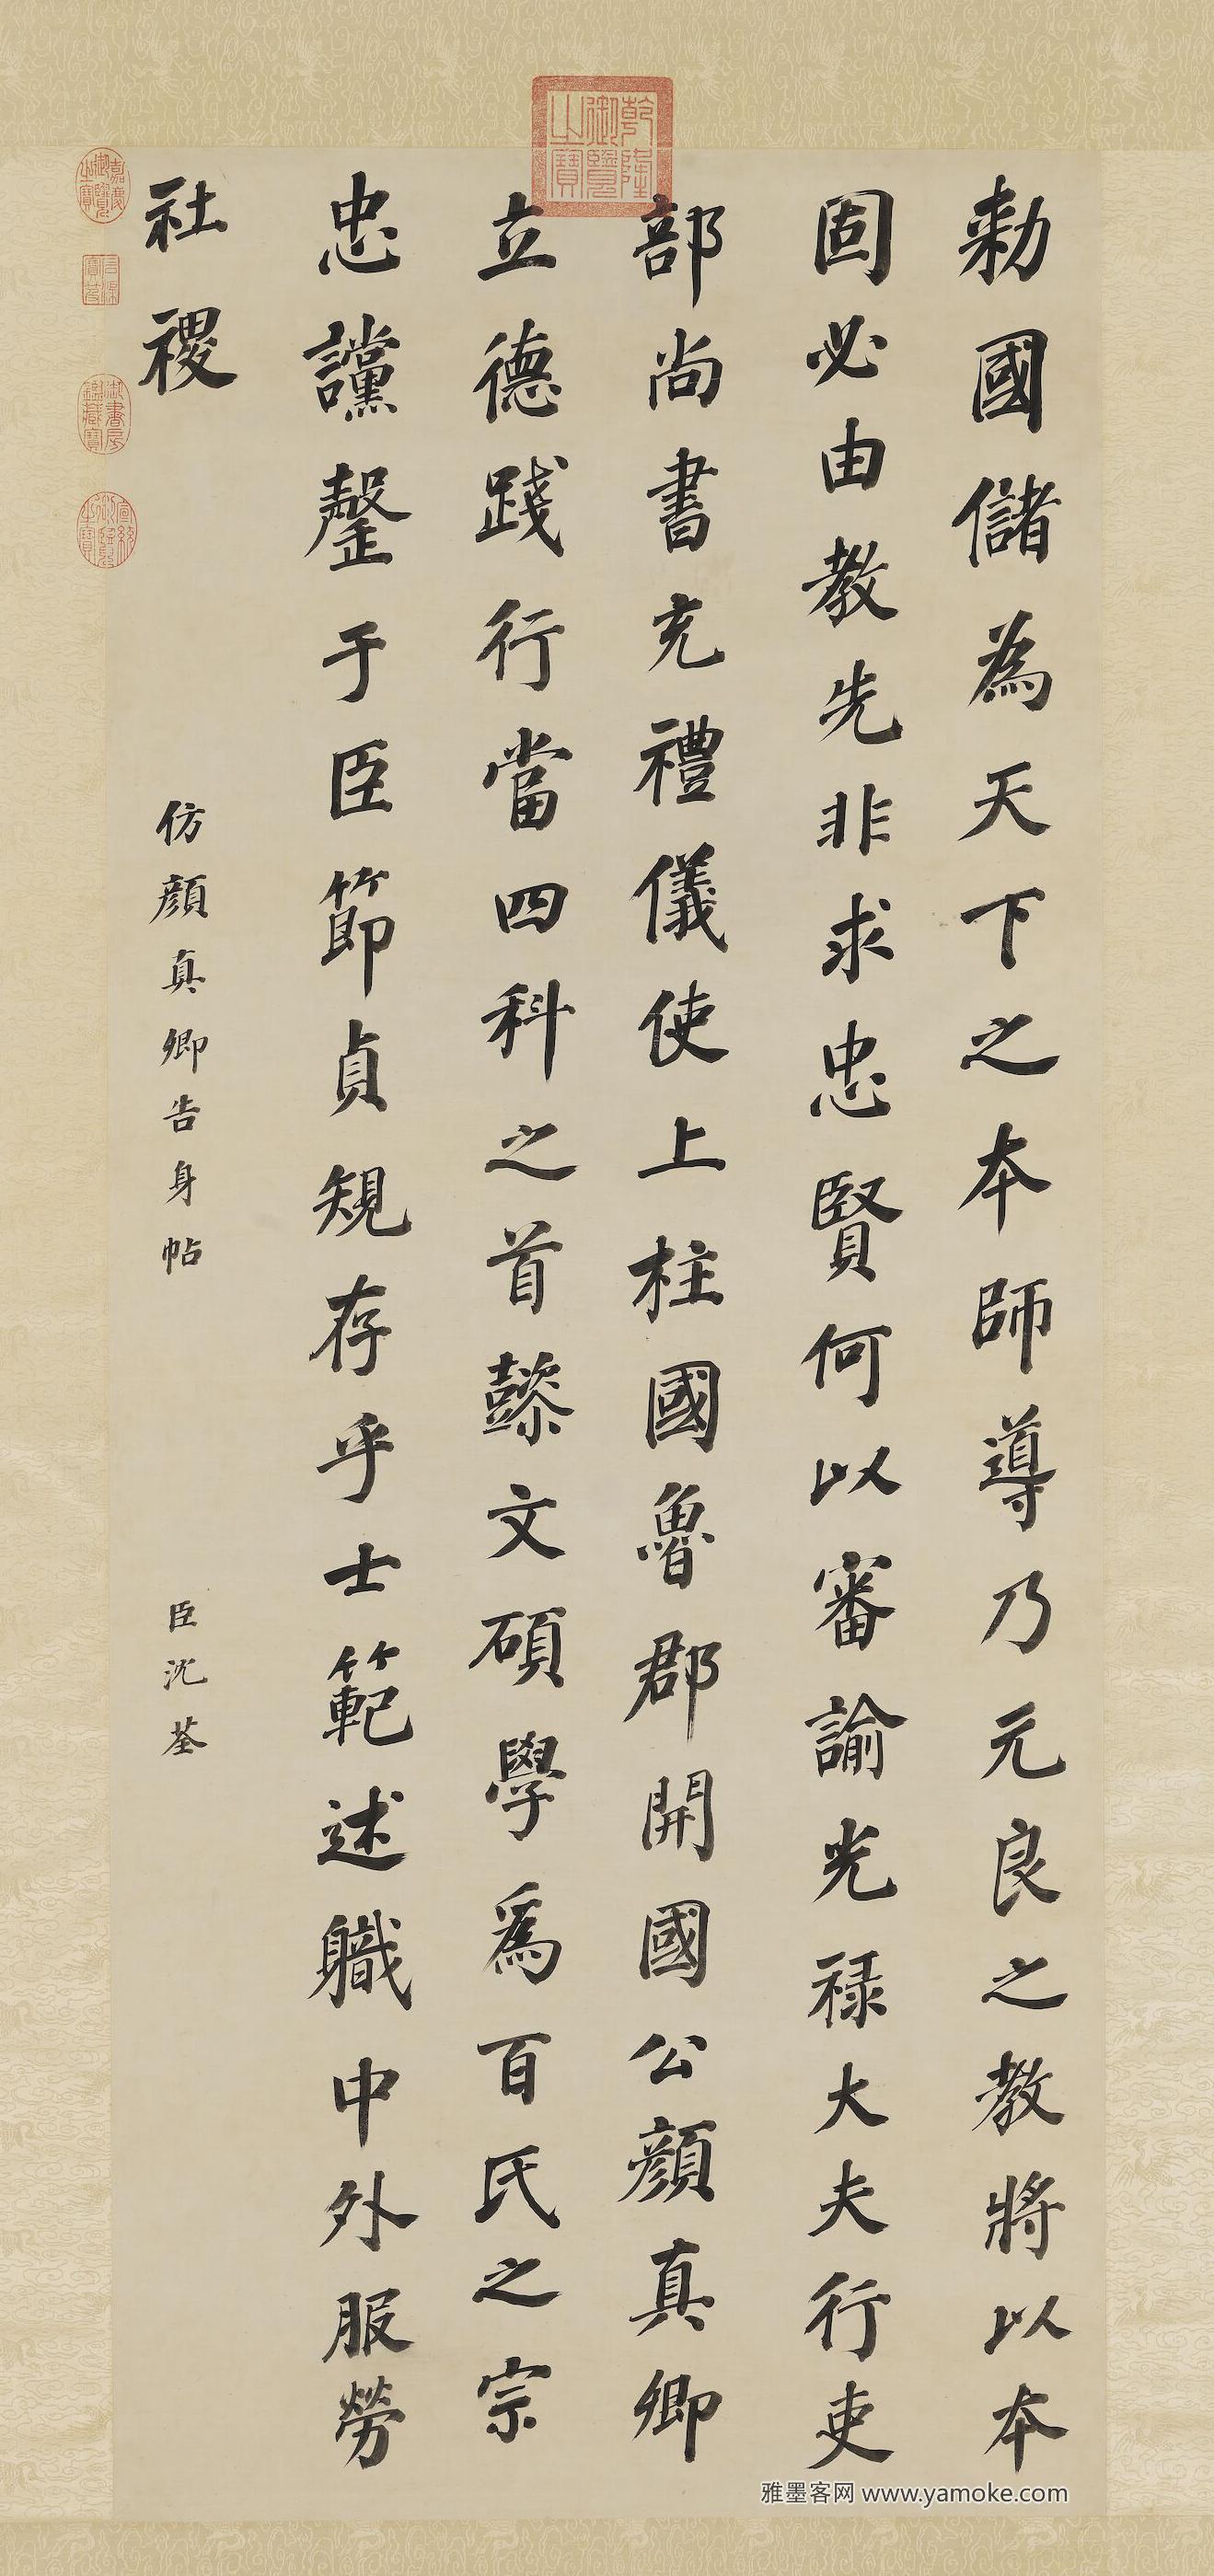 勅國儲為天下之本師導乃元良之教將以本
固必由教先非求忠賢何以審諭光禄大夫行吏
部尚書充禮儀使上柱國魯郡開國公顔真卿
立德踐行當四科之首懿文碩學為百氏之宗
忠讜罄于臣節貞規存乎士範述職中外服勞
社稷
仿顔真卿告身帖
臣沈荃
乾隆御覽之寶
嘉慶御覽之寶
御書房鑑藏寶
宣統御覽之寶
雅墨客网 www.yamoke.com